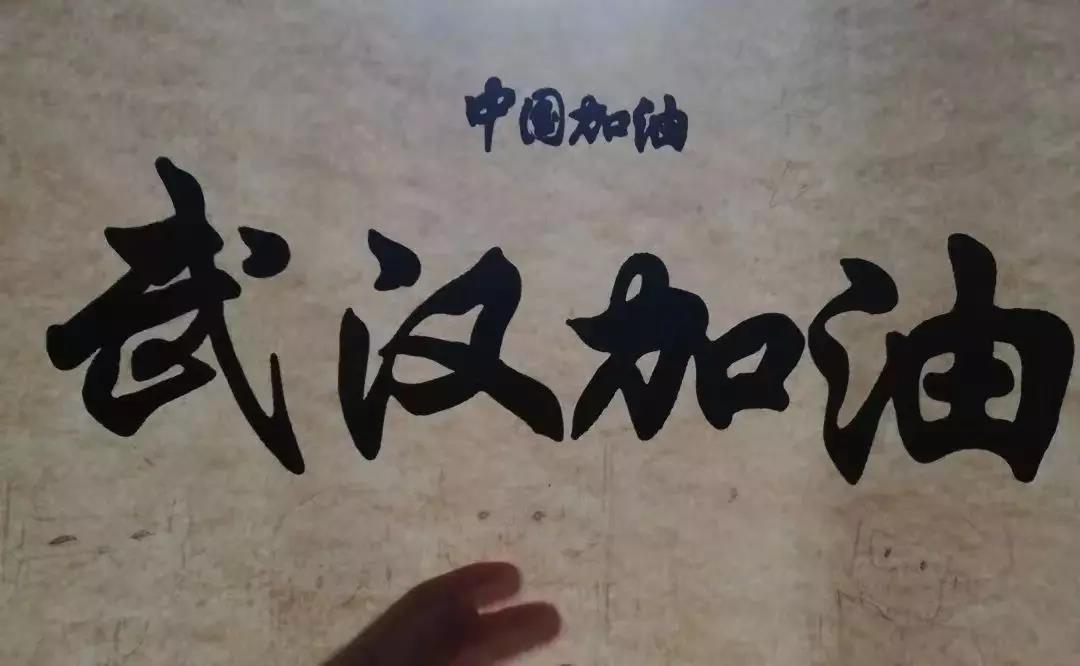 中国加油
武汉加油